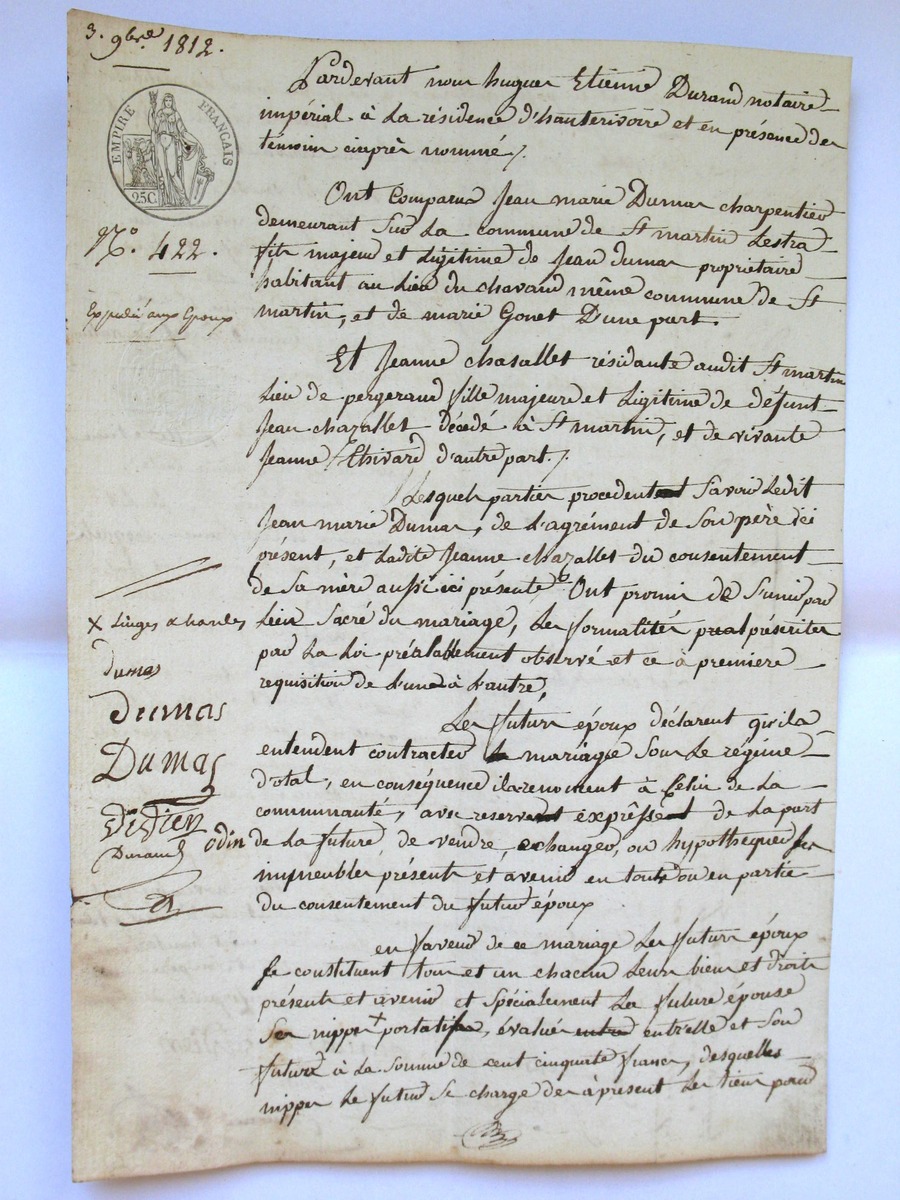 3. 9bre 1812.
EMPIRE FRANÇAIS
25C.
No. 422.
Expedié aux Epoux
Pardevant nous hugues Etienne Durand notaire
impérial à La résidence d'hauterivoire et en présence des
témoins ciaprès nommés /.
Ont Comparus Jean marie Dumas charpentier
demeurant Sur La commune de St martin Lestra
fils majeur et Légitime de Jean dumas propriétaire
habitant au Lieu du chavand même commune de St
martin, et de marie Gonet D'une part.
Et Jeanne chasallet résidante audit St martin
Lieu de pergerand fille majeure et Légitime de défunt
Jean chazallet décédé à St martin, et de vivante
Jeanne Thivard d'autre part /.
Lesquels parties procedent Savoir Ledit
Jean marie Dumas, de L'agrément de Son père ici
présent, et Ladite Jeanne chazallet du consentement
de Sa mère aussi ici présente Ont promis de S'unir par
Lien Sacré du mariage, Les formalités prescrites
par La Loi préalablement observés et ce à première
requisition de L'une à L'autre,
Les futurs époux déclarent qu'ils
entendent contracter mariage Sous Le régime
Dotal, en conséquence ils renoncent à Celui de La
communauté, avec reserve expresse de La part
de La future, de vendre, echanger, ou hypothequer Les
immeubles présents et avenir en toute ou en partie
du consentement du futur époux
en faveur de ce mariage Les futurs époux
Se constituent tous et un chacun Leurs biens et droits
présents et avenir et Spécialement La future épouse
Ses nippes + portatifs, évalués entr'elle et Son
futur à La Somme de cent cinquante francs, desquelles
nippes Le futur Se charge dès à présent Les tient pour
x Linges &
Dumas
Dumas
Dumas
odin
Durand